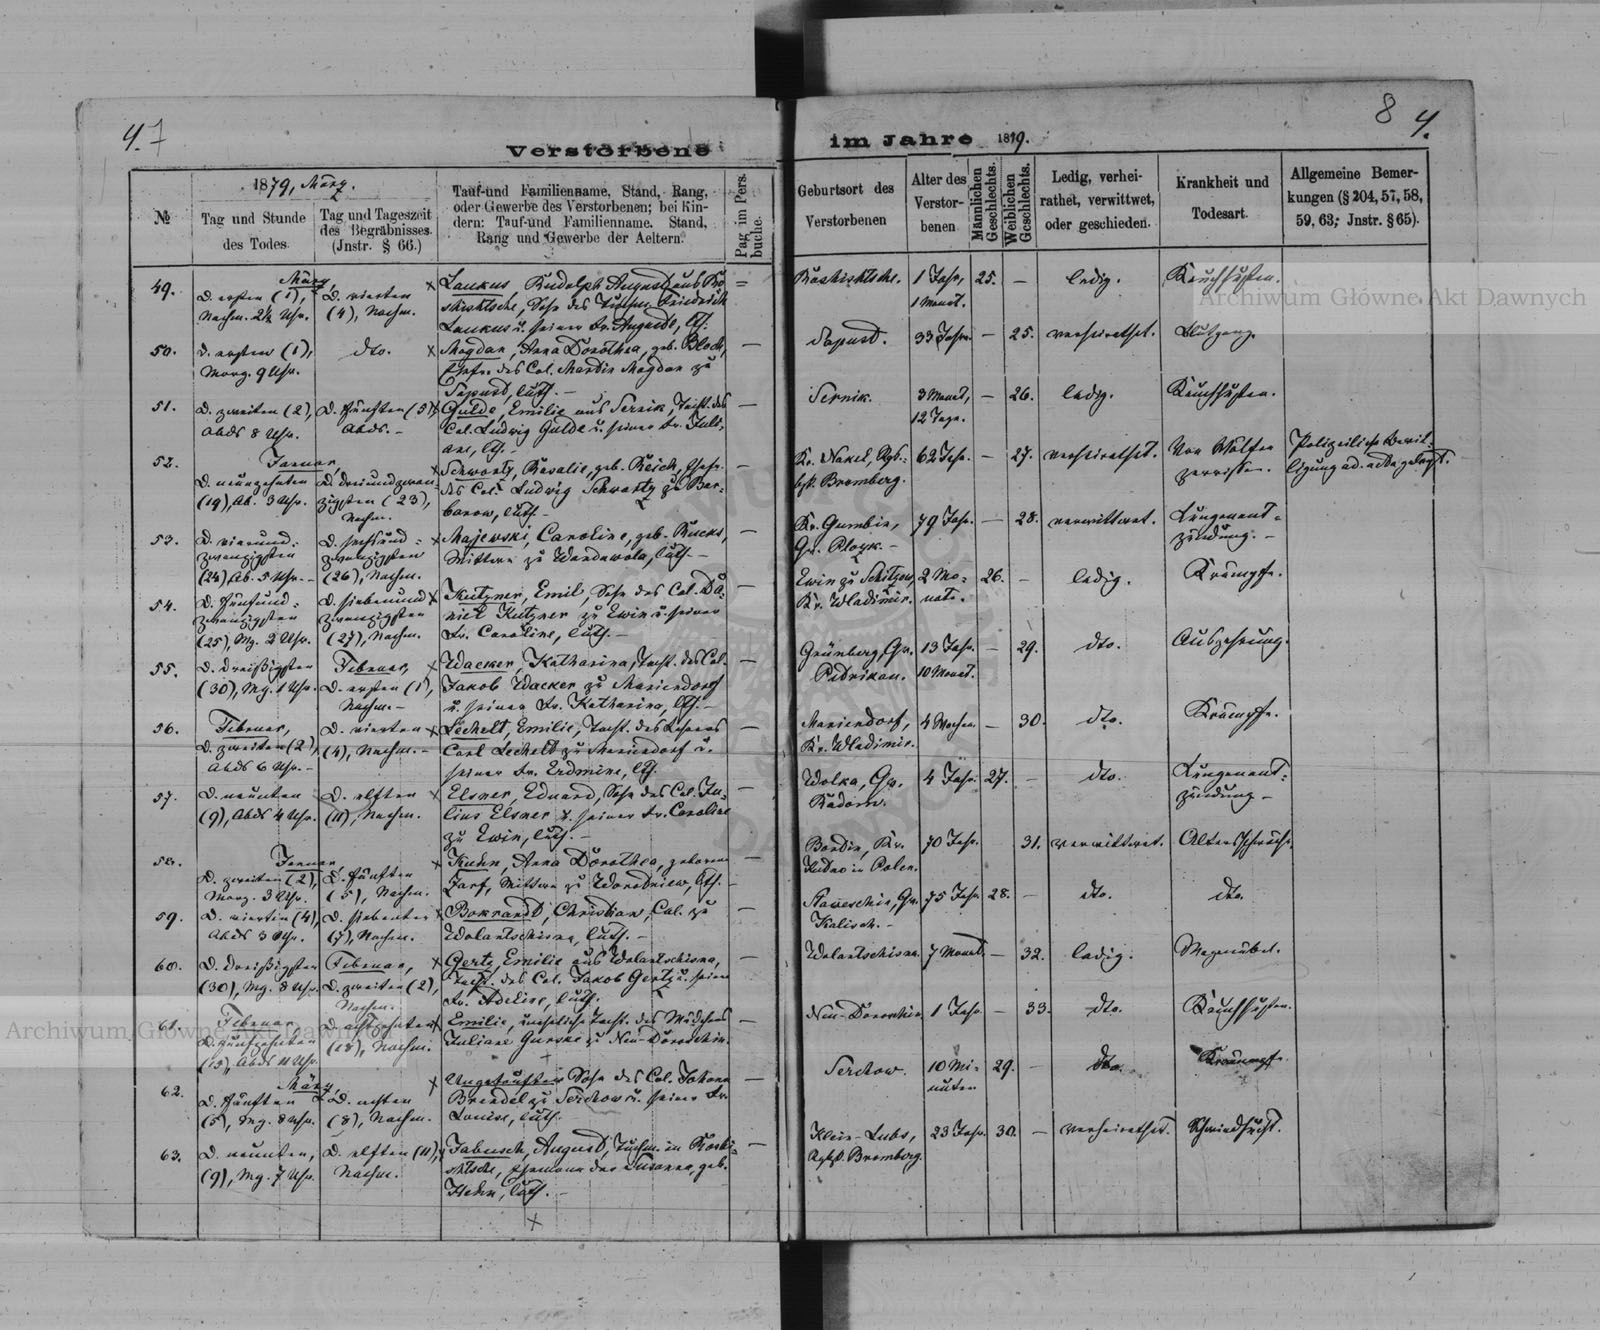 4. 7
8 4.
Verstorbene im Jahre 1879.
№
1879, März.
Tag und Stunde des Todes.
Tag und Tageszeit des Begräbnisses. (Jnstr. § 66.)
Tauf-und Familienname, Stand, Rang, oder Gewerbe des Verstorbenen; bei Kindern: Tauf-und Familienname, Stand, Rang und Gewerbe der Aeltern.
Pag im Pers. buche.
Geburtsort des Verstorbenen
Alter des Verstorbenen
Männlichen Geschlechts.
Weiblichen Geschlechts.
Ledig, verheirathet, verwittwet, oder geschieden.
Krankheit und Todesart.
Allgemeine Bemerkungen (§ 204, 57, 58, 59, 63; Jnstr. § 65).
49.
März,
D. ersten (1), Nachm. 2½ Uhr.
D. vierten (4), Nachm.
Laukus Rudolph August aus Sohn des Tuchm. Friedrich Laukus u. seiner Fr. Auguste, lth.
1 Jahr, 1 Monat.
25. —
ledig.
Keuchhusten.
50.
D. ersten (1), Morg. 9 Uhr.
dto.
Magdan, Anna Dorothea, geb. Block, Ehefr. des Col. Martin Magdan zu Sapust, luth. —
Sapust.
33 Jahr.
— 25.
verheirathet.
Blutgang.
51.
D. zweiten (2), Abds 8 Uhr.
D. fünften (5) Abds. —
Gulde, Emilie aus Sernik, Tocht. des Col. Ludwig Gulde u. seiner Fr. Juliane, lth. —
Sernik.
3 Monat, 12 Tage.
— 26.
ledig.
Keuchhusten.
52.
Januar,
D. neunzehnten (19), Ab. 3 Uhr.
D. dreiundzwanzigsten (23), Nachm.
Schwartz, Rosalie, geb. Reich, Ehefr. des Col. Ludwig Schwartz zu Barbarow, luth.
Kr. Nakel, Rgbzk. Bromberg.
62 Jahr.
— 27.
verheirathet.
Von Wölfen zerrissen.
Polizeiliche Bewilligung ad. acta gelegt.
53.
D. vierundzwanzigsten (24) Ab. 5 Uhr. —
D. sechsundzwanzigsten (26), Nachm.
Majewski, Caroline, geb. Wittwe zu luth. —
Kr. Gumbin, Gv. Plozk. —
79 Jahr.
— 28.
verwittwet.
Lungenentzündung. —
54.
D. fünfundzwanzigsten (25), Mg. 2 Uhr.
D. siebenundzwanzigsten (27), Nachm.
Kutzner, Emil, Sohn des Col. Daniel Kutzner zu Ewin u. seiner Fr. Caroline, luth. —
Ewin zu Kr. Wladimir.
2 Monate.
26. —
ledig.
Krämpfe.
55.
D. dreißigsten (30), Mg. 1 Uhr
Februar,
D. ersten (1), Nachm. —
Wacker, Katharina, Tocht. des Col. Jakob Wacker zu Mariendorf u. seiner Fr. Katharina, lth. —
Grünberg, Gv. Petrikau.
13 Jahr. 10 Monat.
— 29.
dto.
Auszehrung.
56.
Februar,
D. zweiten (2), Abds 6 Uhr. —
D. vierten (4), Nachm. —
Lechelt, Emilie, Tocht. des Lehrers Carl Lechelt zu Mariendorf u. seiner Fr. Erdmine, lth.
Mariendorf, Kr. Wladimir.
4 Wochen
— 30.
dto.
Krämpfe.
57.
D. neunten (9), Abds 4 Uhr.
D. elften (11), Nachm.
Elsner, Eduard, Sohn des Col. Julius Elsner u. seiner Fr. Caroline zu Ewin, luth. —
Wolka, Gv. Radom.
4 Jahr.
27. —
dto.
Lungenentzündung —
58.
Januar,
D. zweiten (2), Morg. 3 Uhr.
D. fünften (5), Nachm.
Kuhn, Anna Dorothea, geborne Wittwe zu lth. —
Kr. Kutno in Polen.
70 Jahr.
31.
verwittwet.
Altersschwäche.
59.
D. vierten (4), Abds 3 Uhr.
D. siebenten (7), Nachm.
Bokrandt, Christian, Col. zu Wolantschisna, luth. —
Gv. Kalisch. —
75 Jahr
28. —
dto.
dto.
60.
D. dreißigsten (30), Mg. 8 Uhr.
Februar,
D. zweiten (2), Nachm.
Gertz, Emilie aus Wolantschisna, Tocht. des Col. Jakob Gertz u. seiner Fr. Adeline, luth.
Wolantschisna.
7 Monat.
— 32.
ledig.
Magenübel.
61.
Februar
D. fünfzehnten (15), Abds 11 Uhr.
D. achtzehnten (18), Nachm.
Emilie, uneheliche Tocht. des Mädchens Juliane Gurske zu Neu-Dorostin.
Neu-Dorostin
1 Jahr.
— 33.
dto.
Keuchhusten.
62.
März,
D. fünften (5), Mg. 8 Uhr.
D. achten (8), Nachm.
Ungetaufter Sohn des Col. Johann Brendel zu Serchow u. seiner Fr. Louise, luth.
Serchow.
10 Minuten
29. —
dto.
Krämpfe.
63.
D. neunten, (9), Mg. 7 Uhr.
D. elften (11), Nachm.
Jabusch, August, Tuchm. in Ehemann der Susanna, geb. Hehn, luth. —
Klein-Lubs, Rgbzk. Bromberg.
23 Jahr.
30. —
verheirathet.
Schwindsucht.
Archiwum Główne Akt Dawnych
Archiwum Główne Akt Dawnych